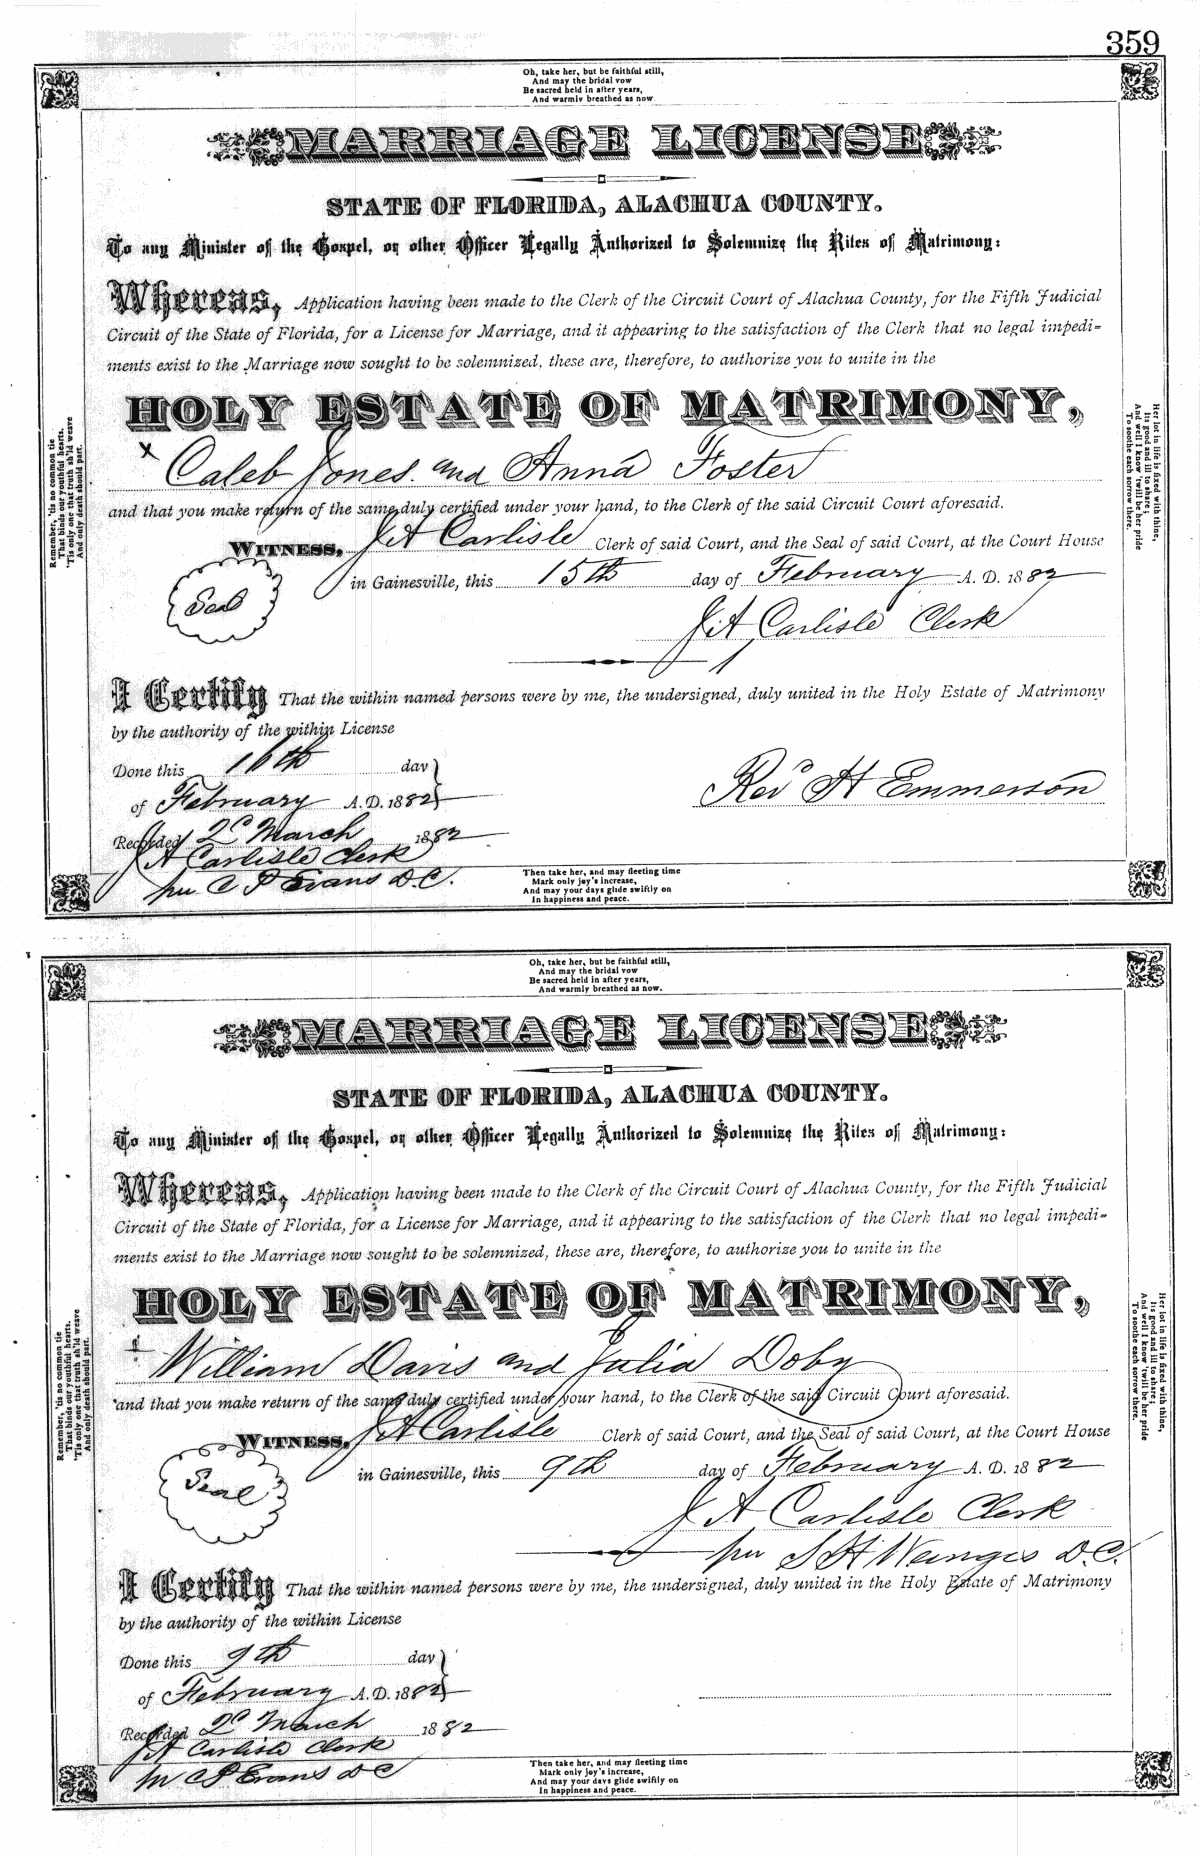 359
Oh, take her, but be faithful still,
And may the bridal vow
Be sacred held in after years,
And warmly breathed as now.
MARRIAGE LICENSE
STATE OF FLORIDA, ALACHUA COUNTY.
To any Minister of the Gospel, or other Officer Legally Authorized to Solemnize the Rites of Matrimony:
Whereas, Application having been made to the Clerk of the Circuit Court of Alachua County, for the Fifth Judicial
Circuit of the State of Florida, for a License for Marriage, and it appearing to the satisfaction of the Clerk that no legal impedi-
ments exist to the Marriage now sought to be solemnized, these are, therefore, to authorize you to unite in the
HOLY ESTATE OF MATRIMONY,
x Caleb Jones. and Anna Foster
and that you make return of the same duly certified under your hand, to the Clerk of the said Circuit Court aforesaid.
WITNESS, J A Carlisle Clerk of said Court, and the Seal of said Court, at the Court House
Seal
in Gainesville, this 15th day of February A. D. 1882
J A Carlisle Clerk
I Certify That the within named persons were by me, the undersigned, duly united in the Holy Estate of Matrimony
by the authority of the within License
Done this 16th day
of February A. D. 1882
Revd H Emmerson
Recorded 2d March 1882
J A Carlisle Clerk
per C P Evans D.C.
Then take her, and may fleeting time
Mark only joy's increase,
And may your days glide swiftly on
In happiness and peace.
Remember, 'tis no common tie
That binds our youthful hearts.
'Tis only one that truth sh'ld weave
And only death should part.
Her lot in life is fixed with thine,
Its good and ill to share;
And well I know 'twill be her pride
To soothe each sorrow there.
Oh, take her, but be faithful still,
And may the bridal vow
Be sacred held in after years,
And warmly breathed as now.
MARRIAGE LICENSE
STATE OF FLORIDA, ALACHUA COUNTY.
To any Minister of the Gospel, or other Officer Legally Authorized to Solemnize the Rites of Matrimony:
Whereas, Application having been made to the Clerk of the Circuit Court of Alachua County, for the Fifth Judicial
Circuit of the State of Florida, for a License for Marriage, and it appearing to the satisfaction of the Clerk that no legal impedi-
ments exist to the Marriage now sought to be solemnized, these are, therefore, to authorize you to unite in the
HOLY ESTATE OF MATRIMONY,
William Davis and Julia Doby
and that you make return of the same duly certified under your hand, to the Clerk of the said Circuit Court aforesaid.
WITNESS, J A Carlisle Clerk of said Court, and the Seal of said Court, at the Court House
Seal
in Gainesville, this 9th day of February A. D. 1882
J A Carlisle Clerk
per S H Wienges D.C.
I Certify That the within named persons were by me, the undersigned, duly united in the Holy Estate of Matrimony
by the authority of the within License
Done this 9th day
of February A. D. 1882
Recorded 2d March 1882
J A Carlisle Clerk
per C P Evans D C
Then take her, and may fleeting time
Mark only joy's increase,
And may your days glide swiftly on
In happiness and peace.
Remember, 'tis no common tie
That binds our youthful hearts.
'Tis only one that truth sh'ld weave
And only death should part.
Her lot in life is fixed with thine,
Its good and ill to share;
And well I know 'twill be her pride
To soothe each sorrow there.